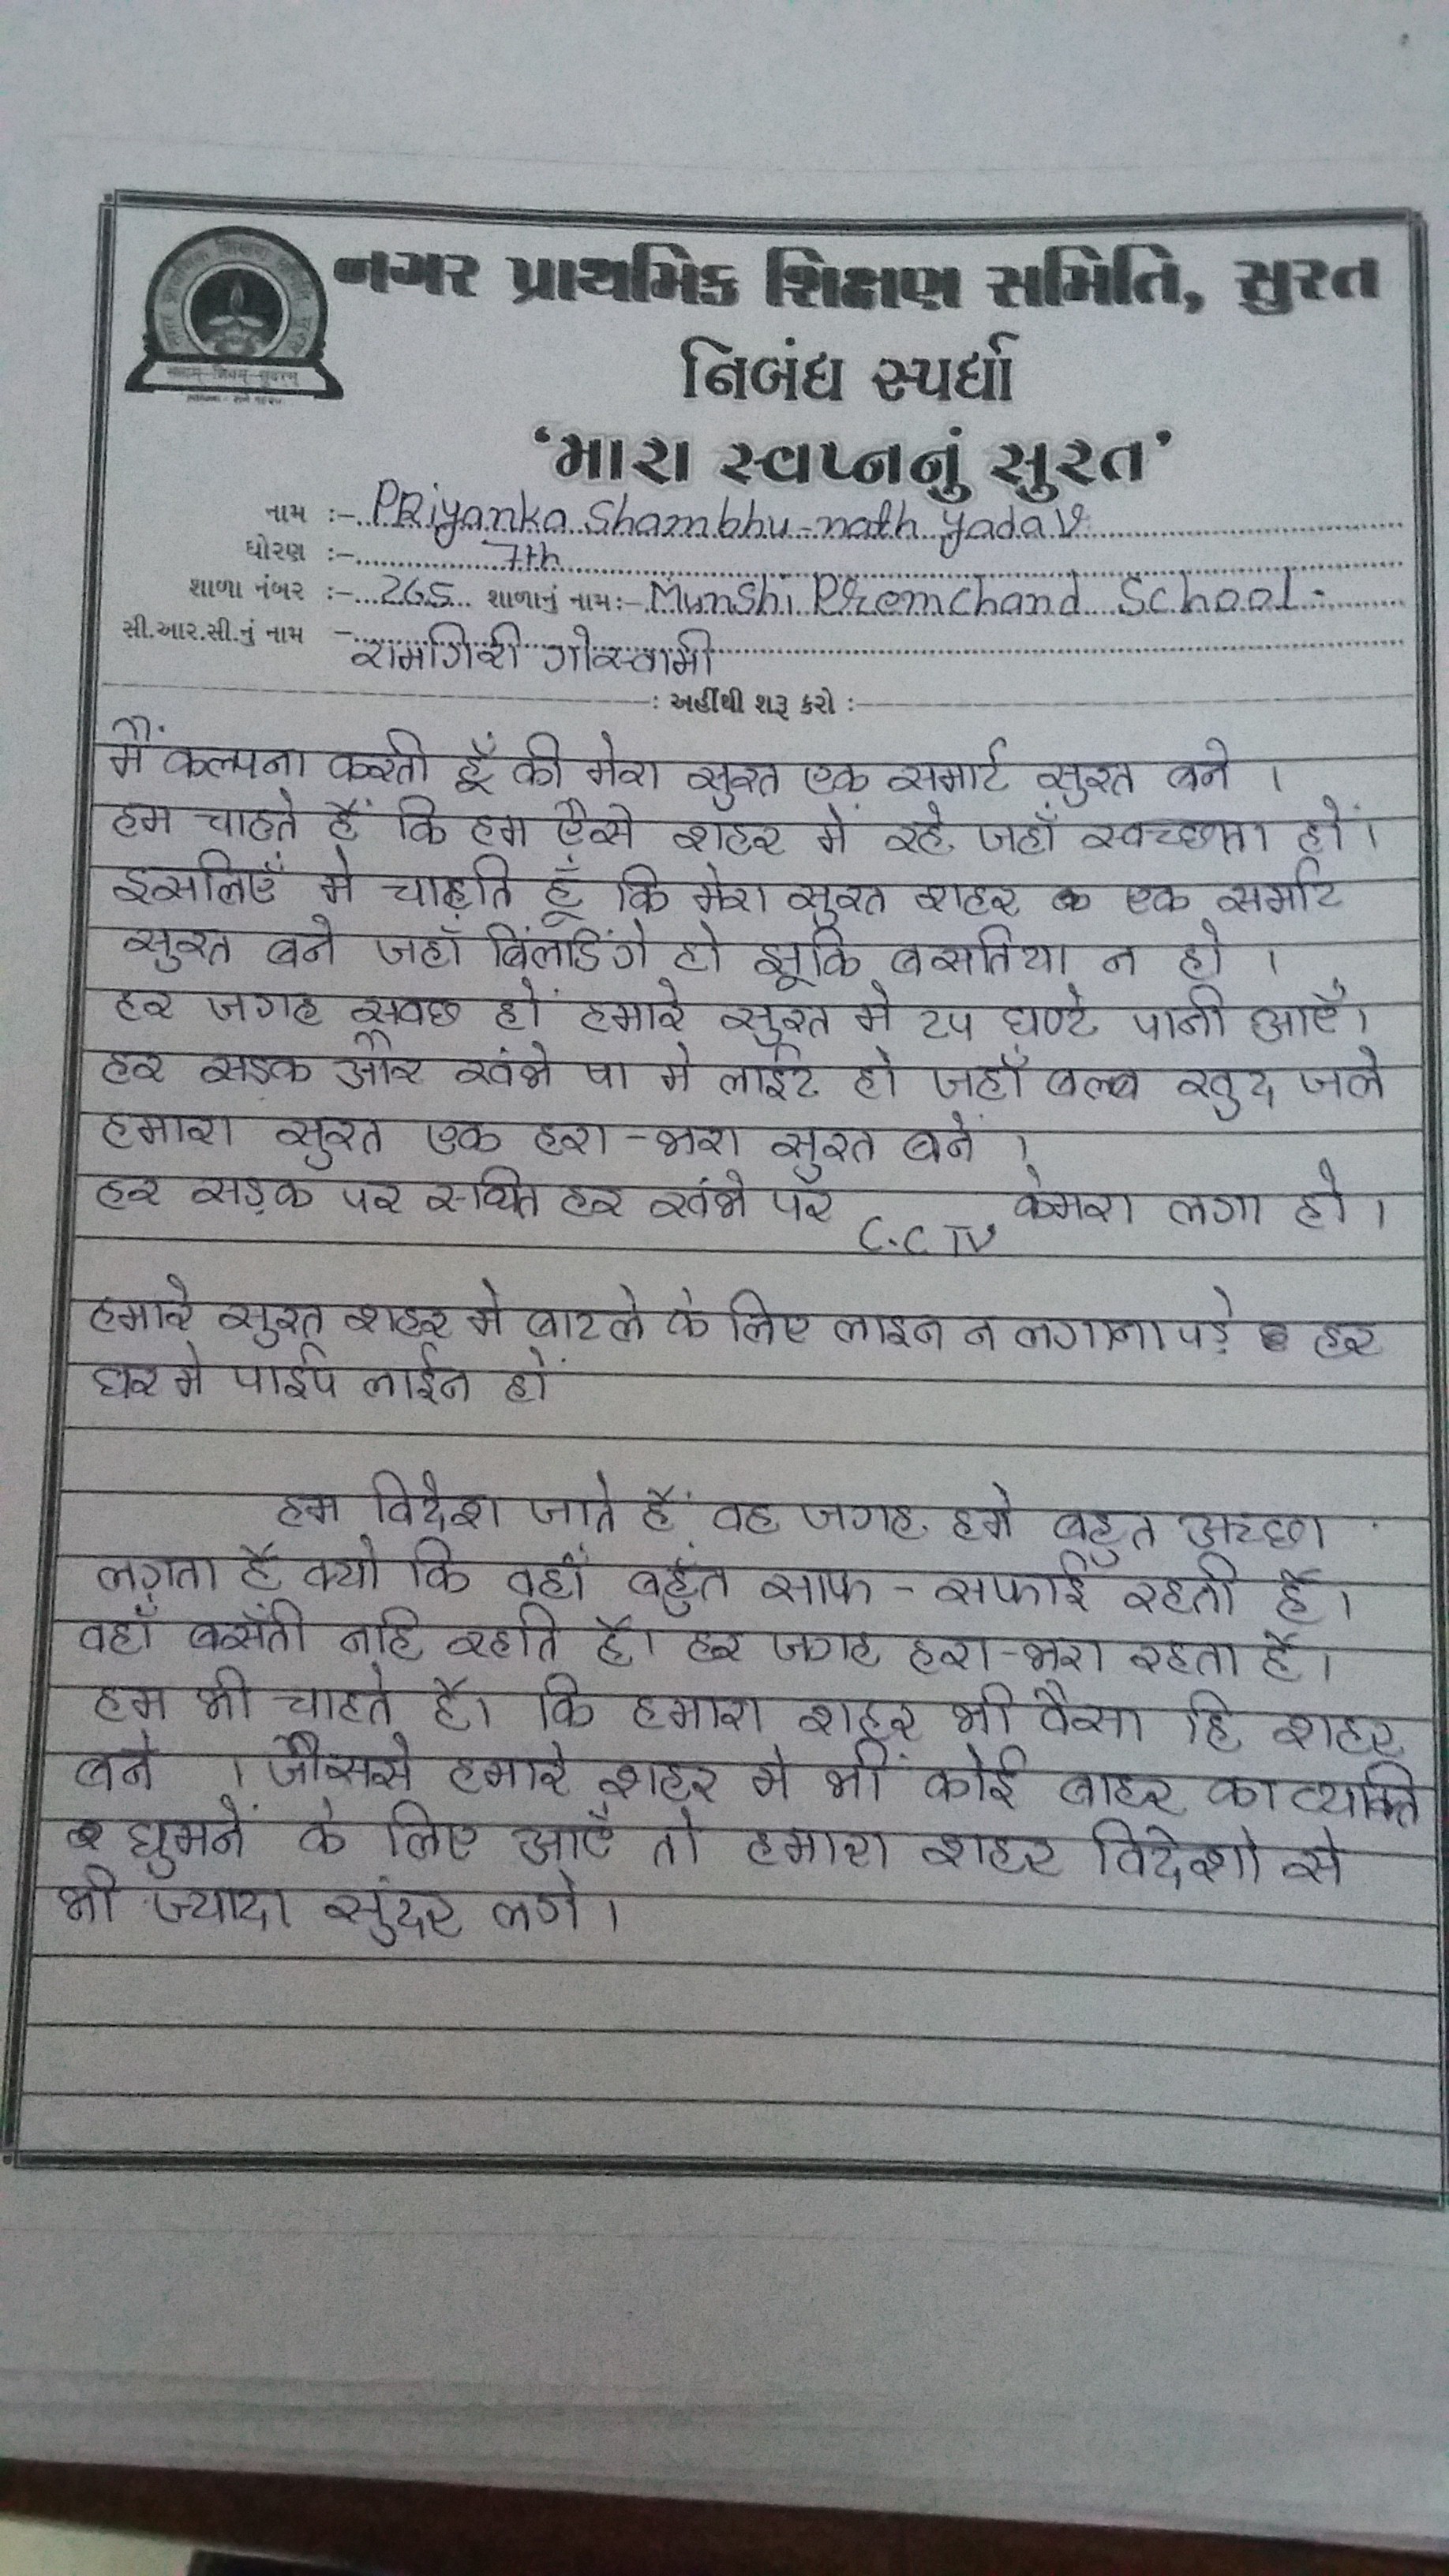 નગર પ્રાથમિક શિક્ષણ સમિતિ, સુરત
નિબંધ સ્પર્ધા
‘મારા સ્વપ્નનું સુરત’
નામ :- PRiyanka Shambhu-nath yadav
ધોરણ :- 7th
શાળા નંબર :- 265 શાળાનું નામ:- Munshi Premchand School.
સી.આર.સી.નું નામ - રામગિરી ગોસ્વામી
: અહીંથી શરૂ કરો :
मैं कल्पना करती हूँ की मेरा सुरत एक समार्ट सुरत बने ।
हम चाहते हैं कि हम ऐसे शहर में रहे जहाँ स्वच्छता हों ।
इसलिएँ मे चाहति हूँ कि मेरा सुरत शहर एक सर्माट
सुरत बने जहाँ बिंलडिंगे हो झूकि बसतिया न हो ।
हर जगह स्वछ हों हमारे सुरत मे २५ घण्टे पानी आएँ।
हर सड़क और खंभे पा मे लाईट हो जहाँ बल्ब खुद जले
हमारा सुरत एक हरा-भरा सुरत बने ।
हर सड़क पर स्थित हर खंभे पर C.C TV केमरा लगा हो ।
हमारे सुरत शहर मे बाटले के लिए लाइन न लगाना पड़े हर
घर मे पाईप लाईन हों
हम विदेश जाते हैं वह जगह हमे बहुत अच्छा
लगता हैं क्यो कि वहाँ बहुत साफ-सफाई रहती हैं ।
वहाँ बसती नहि रहति हैं। हर जगह हरा-भरा रहता हैं ।
हम भी चाहते हैं। कि हमारा शहर भी वैसा हि शहर
बने । जौससे हमारे शहर मे भी कोई बाहर का व्यक्ति
घुमनें के लिए आएँ तो हमारा शहर विदेशो से
भी ज्यादा सुंदर लगे ।